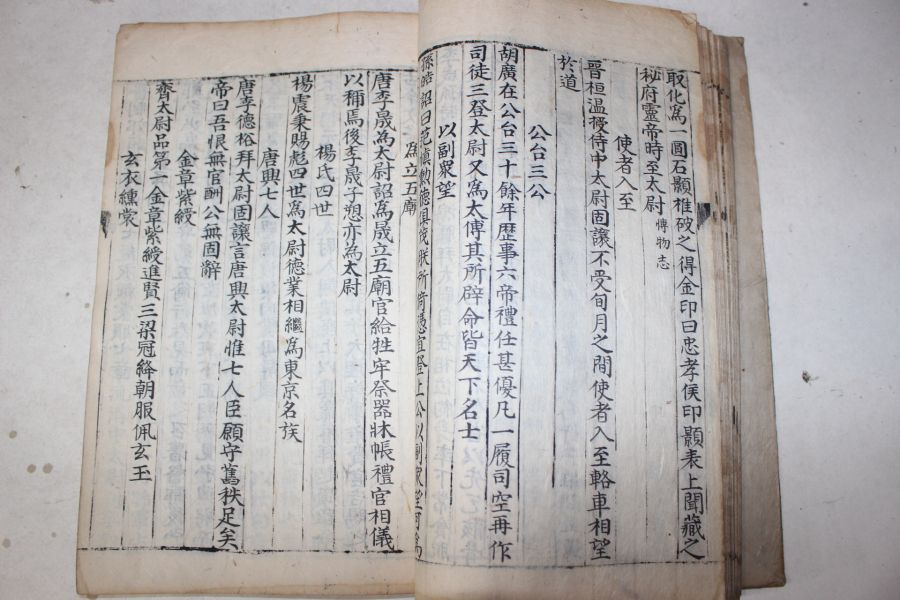 取化爲一圓石顥椎破之得金印曰忠孝侯印顥表上聞藏之
秘府靈帝時至太尉 博物志
使者入至
晉桓温授侍中太尉固讓不受旬月之間使者入至輅車相望
於道
公台三公
胡廣在公台三十餘年歴事六帝禮任甚優凡一履司空再作
司徒三登太尉又爲太傅其所辟命皆天下名士
以副衆望
孫晧詔曰范愼勲德俱茂朕所倚憑宜登上公以副衆望可爲
爲立五廟
唐李晟爲太尉詔爲晟立五廟官給牲牢祭器牀帳禮官相儀
以稱焉後李晟子愬亦爲太尉
楊氏四世
楊震秉賜彪四世爲太尉德業相繼爲東京名族
唐興七人
唐李德裕拜太尉固讓言唐興太尉惟七人臣願守舊秩足矣
帝曰吾恨無官酬公無固辭
金章紫綬
齊太尉品第一金章紫綬進賢三梁冠絳朝服佩玄玉
玄衣纁裳